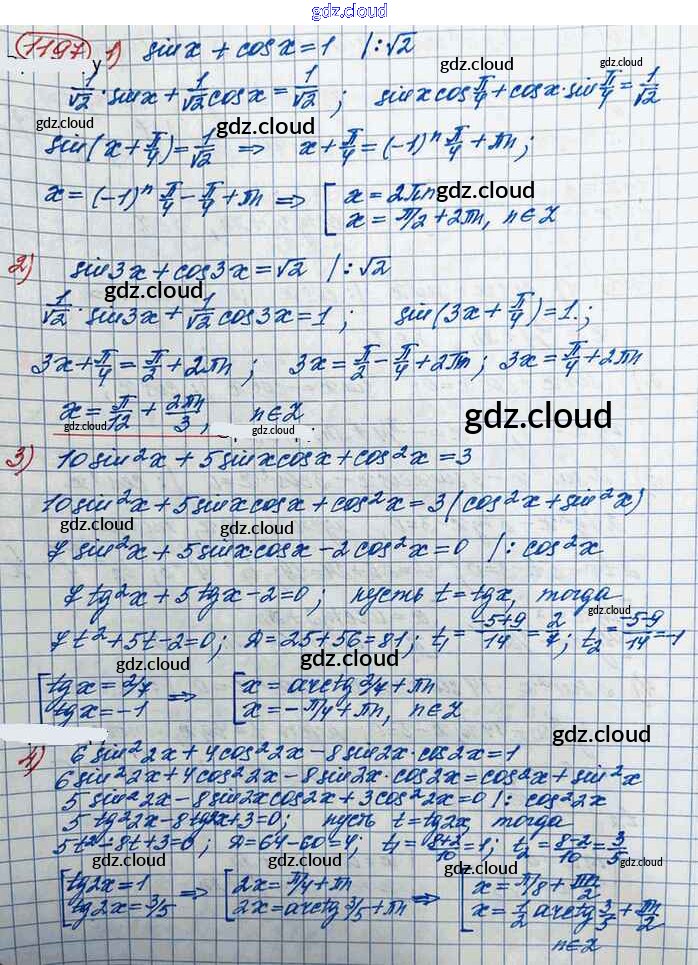 gdz.cloud
1197 1) sinx + cosx = 1 | : √2
1/√2 · sinx + 1/√2 cosx = 1/√2 ; sinx cos π/4 + cosx · sin π/4 = 1/√2
gdz.cloud gdz.cloud
sin(x + π/4) = 1/√2 ⇒ x + π/4 = (-1)ⁿ π/4 + πn ;
gdz.cloud
x = (-1)ⁿ π/4 - π/4 + πn ⇒ [ x = 2πn
x = π/2 + 2πn, n∈Z
gdz.cloud
2) sin3x + cos3x = √2 | : √2
gdz.cloud
1/√2 · sin3x + 1/√2 cos3x = 1 ; sin(3x + π/4) = 1. ;
gdz.cloud
3x + π/4 = π/2 + 2πn ; 3x = π/2 - π/4 + 2πn ; 3x = π/4 + 2πn
gdz.cloud
x = π/12 + 2πn/3 , n∈Z
gdz.cloud gdz.cloud
3) 10sin²x + 5sinxcosx + cos²x = 3
10sin²x + 5sinxcosx + cos²x = 3(cos²x + sin²x)
gdz.cloud gdz.cloud
7sin²x + 5sinxcosx - 2cos²x = 0 | : cos²x
7tg²x + 5tgx - 2 = 0 ; пусть t = tgx, тогда
gdz.cloud
7t² + 5t - 2 = 0 ; D = 25 + 56 = 81 ; t₁ = -5+9/14 = 2/7 ; t₂ = -5-9/14 = -1
gdz.cloud gdz.cloud
[ tgx = 2/7 ⇒ [ x = arctg 2/7 + πn
tgx = -1 x = -π/4 + πn, n∈Z
gdz.cloud gdz.cloud
4) 6sin²2x + 4cos²2x - 8sin2x·cos2x = 1
gdz.cloud
6sin²2x + 4cos²2x - 8sin2x·cos2x = cos²x + sin²x
5sin²2x - 8sin2xcos2x + 3cos²2x = 0 | : cos²2x
gdz.cloud
5tg²2x - 8tg2x + 3 = 0 ; пусть t = tg2x, тогда
5t² - 8t + 3 = 0 ; D = 64 - 60 = 4 ; t₁ = 8+2/10 = 1 ; t₂ = 8-2/10 = 3/5
gdz.cloud gdz.cloud gdz.cloud
[ tg2x = 1 ⇒ [ 2x = π/4 + πn ⇒ [ x = π/8 + πn/2
tg2x = 3/5 2x = arctg 3/5 + πn x = 1/2 arctg 3/5 + πn/2
n∈Z
gdz.cloud gdz.cloud gdz.cloud